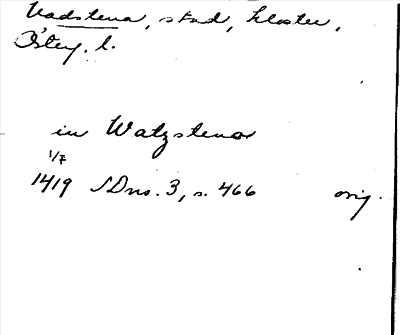 Vadstena, stad, kloster,
Östg. l.
in Watzstena
1/7
1419 SDns. 3, s. 466 orig.